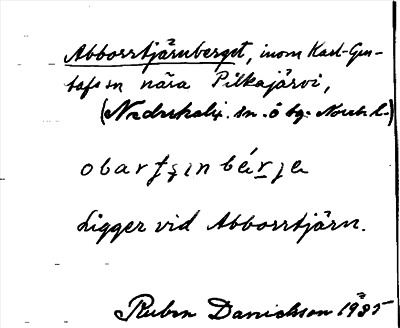 Abborrtjärnberget, inom Karl-Gus-
tafs sn nära Pilkajärvi,
(Nederkalix sn. o bg. Norrb. l.)
obartʃɪn bérjə
Ligger vid Abborrtjärn.
Ruben Danielsson 1935